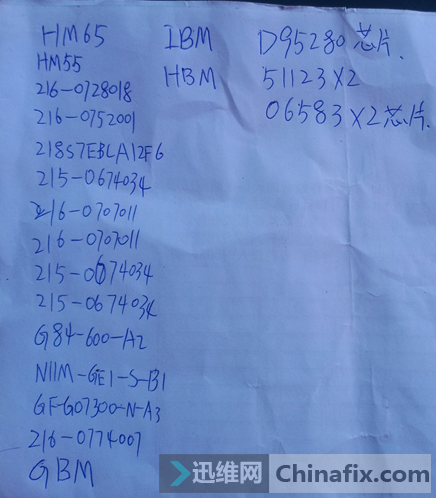 HM65 IBM D95280芯片.
HM55 HBM 51123X2
216-0728018 06583X2芯片.
216-0752001
218S7EBLA12F6
215-0674034
216-0707011
216-0707011
215-0674034
215-0674034
G84-600-A2
N11M-GE1-S-B1
GF-G07300-N-A3
216-0774007
GBM
迅维网 Chinafix.com